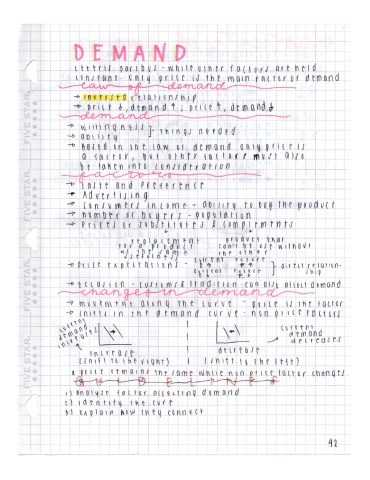 DEMAND
ceteris paribus - while other factors are held
constant only price is the main factor of demand
law of demand
→ inversed relationship
→ price ↓, demand ↑ ; price ↑, demand ↓
demand
→ willingness ] things needed
→ ability
→ based on the law of demand only price is
a factor, but other factors must also
be taken into consideration
factors
→ taste and preference
→ Advertising
→ consumers income - ability to buy the product
→ number of buyers - population
→ prices of substitutes & compliments
replacement
for a product
product that
can't be use without
the other
→ price expectations -
current future
current future
] direct relation-
ship
→ religion - customs & tradition can also affect demand
changes in demand
→ movement along the curve - price is the factor
→ shifts in the demand curve - non price factors
current
demand
increases
increase
(shift to the right)
decrease
(shift to the left)
current
demand
decreases
* price remains the same while non price factor changes
GUIDELINES
1) analyze factor affecting demand
2) identify the curve
3) explain how they connect
42
FIVE STAR
FIVE STAR
FIVE STAR
FIVE STAR